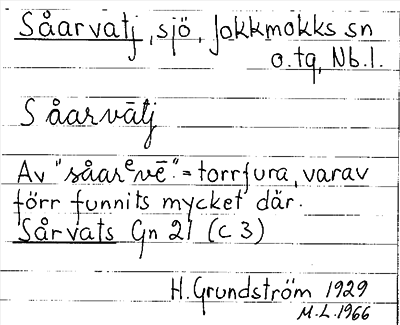 Såarvatj, sjö, Jokkmokks sn
o.tg, Nb.l.
Såarvātj
Av "såarᵉvē" = torrfura, varav
förr funnits mycket där.
Sårvats Gn 21 (C 3)
H. Grundström 1929
M.L. 1966